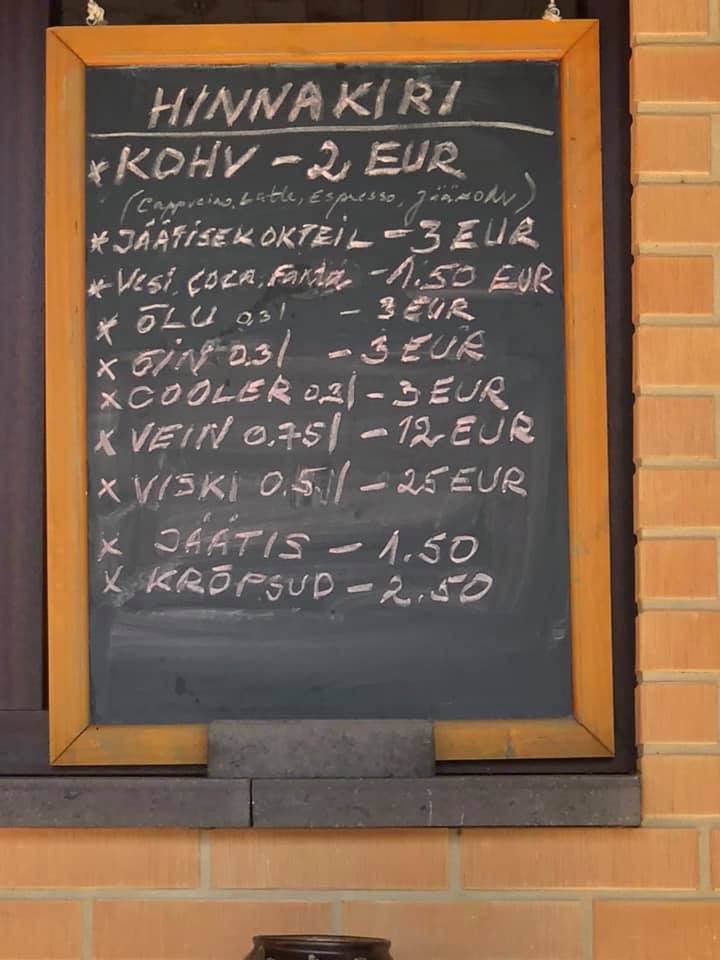 HINNAKIRI
* KOHV - 2 EUR
(Cappucino, Latte, Espresso, jääkohv)
* JÄÄTISEKOKTEIL - 3 EUR
* VESI, COCA, FANTA - 1.50 EUR
* ÕLU 0,3l - 3 EUR
x GIN 0.3l - 3 EUR
x COOLER 0.3l - 3 EUR
x VEIN 0.75l - 12 EUR
x VISKI 0.5l - 25 EUR
x JÄÄTIS - 1.50
x KRÕPSUD - 2.50